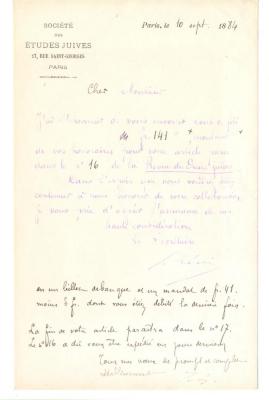 SOCIÉTÉ
DES
ÉTUDES JUIVES
17, RUE SAINT-GEORGES
PARIS
Paris, le 10 sept. 1884
Cher Monsieur
J'ai l'honneur de vous envoyer sous ce pli
fr. 141 montant
de vos honoraires pour votre article paru
dans le n° 16 de la Revue des Études juives
Dans l'espoir que vous voudrez bien
continuer à nous honorer de votre collaboration
je vous prie d'agréer l'assurance de ma
haute considération
Le Secrétaire
en un billet de banque et un mandat de fr. 41.
moins 8 fr. dont vous étiez débité la dernière fois.
La fin de votre article paraîtra dans le n° 17.
Le n° 16 a dû vous être expédié ces jours derniers